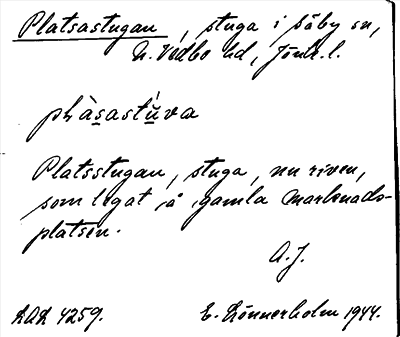 Platsastugan, stuga i Säby sn,
N. Vedbo hd, Jönk. l.
plàsastùva
Platsstugan, stuga, nu riven,
som legat å gamla marknads-
platsen.
A.J.
LAL 4259. E. Lönnerholm 1944.